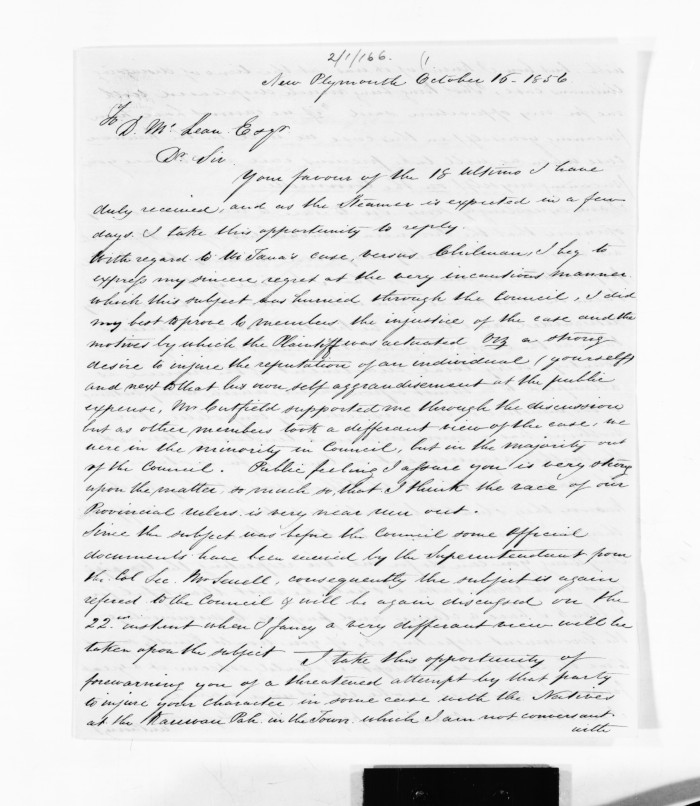 2/1/166. (1
New Plymouth October 16 - 1856
To
D. Mc Lean Esqr
Dr Sir
Your favour of the 18 Ultimo I have
duly received, and as the Steamer is expected in a few
days. I take this opportunity to reply.
With regard to Mr case, versus Chilman, I beg to
express my sincere regret at the very incautious manner
which this subject was hurried through the Council, I did
my best to prove to members the injustice of the case and the
motives by which the Plaintiff was actuated Viz a strong
desire to injure the reputation of an individual (yourself)
and next to that his own self aggrandisement at the public
expense, Mr Cutfield supported me through the discussion
but as other members took a differant view of the case, we
were in the minority in Council, but in the majority out
of the Council. Public feeling I assure you is very strong
upon the matter, so much so, that I think the race of our
Provincial rulers is very near run out.
Since the subject was before the Council some Official
documents have been received by the Superintendant from
the Col Sec. Mr Sewell, consequently the subject is again
refered to the Council & will be again discussed on the
22nd instant when I fancy a very differant view will be
taken upon the subject I take this opportunity of
forewarning you of a threatened attempt by that party
to injure your character in some case with the Natives
at the Pah in the Town which I am not conversant
with